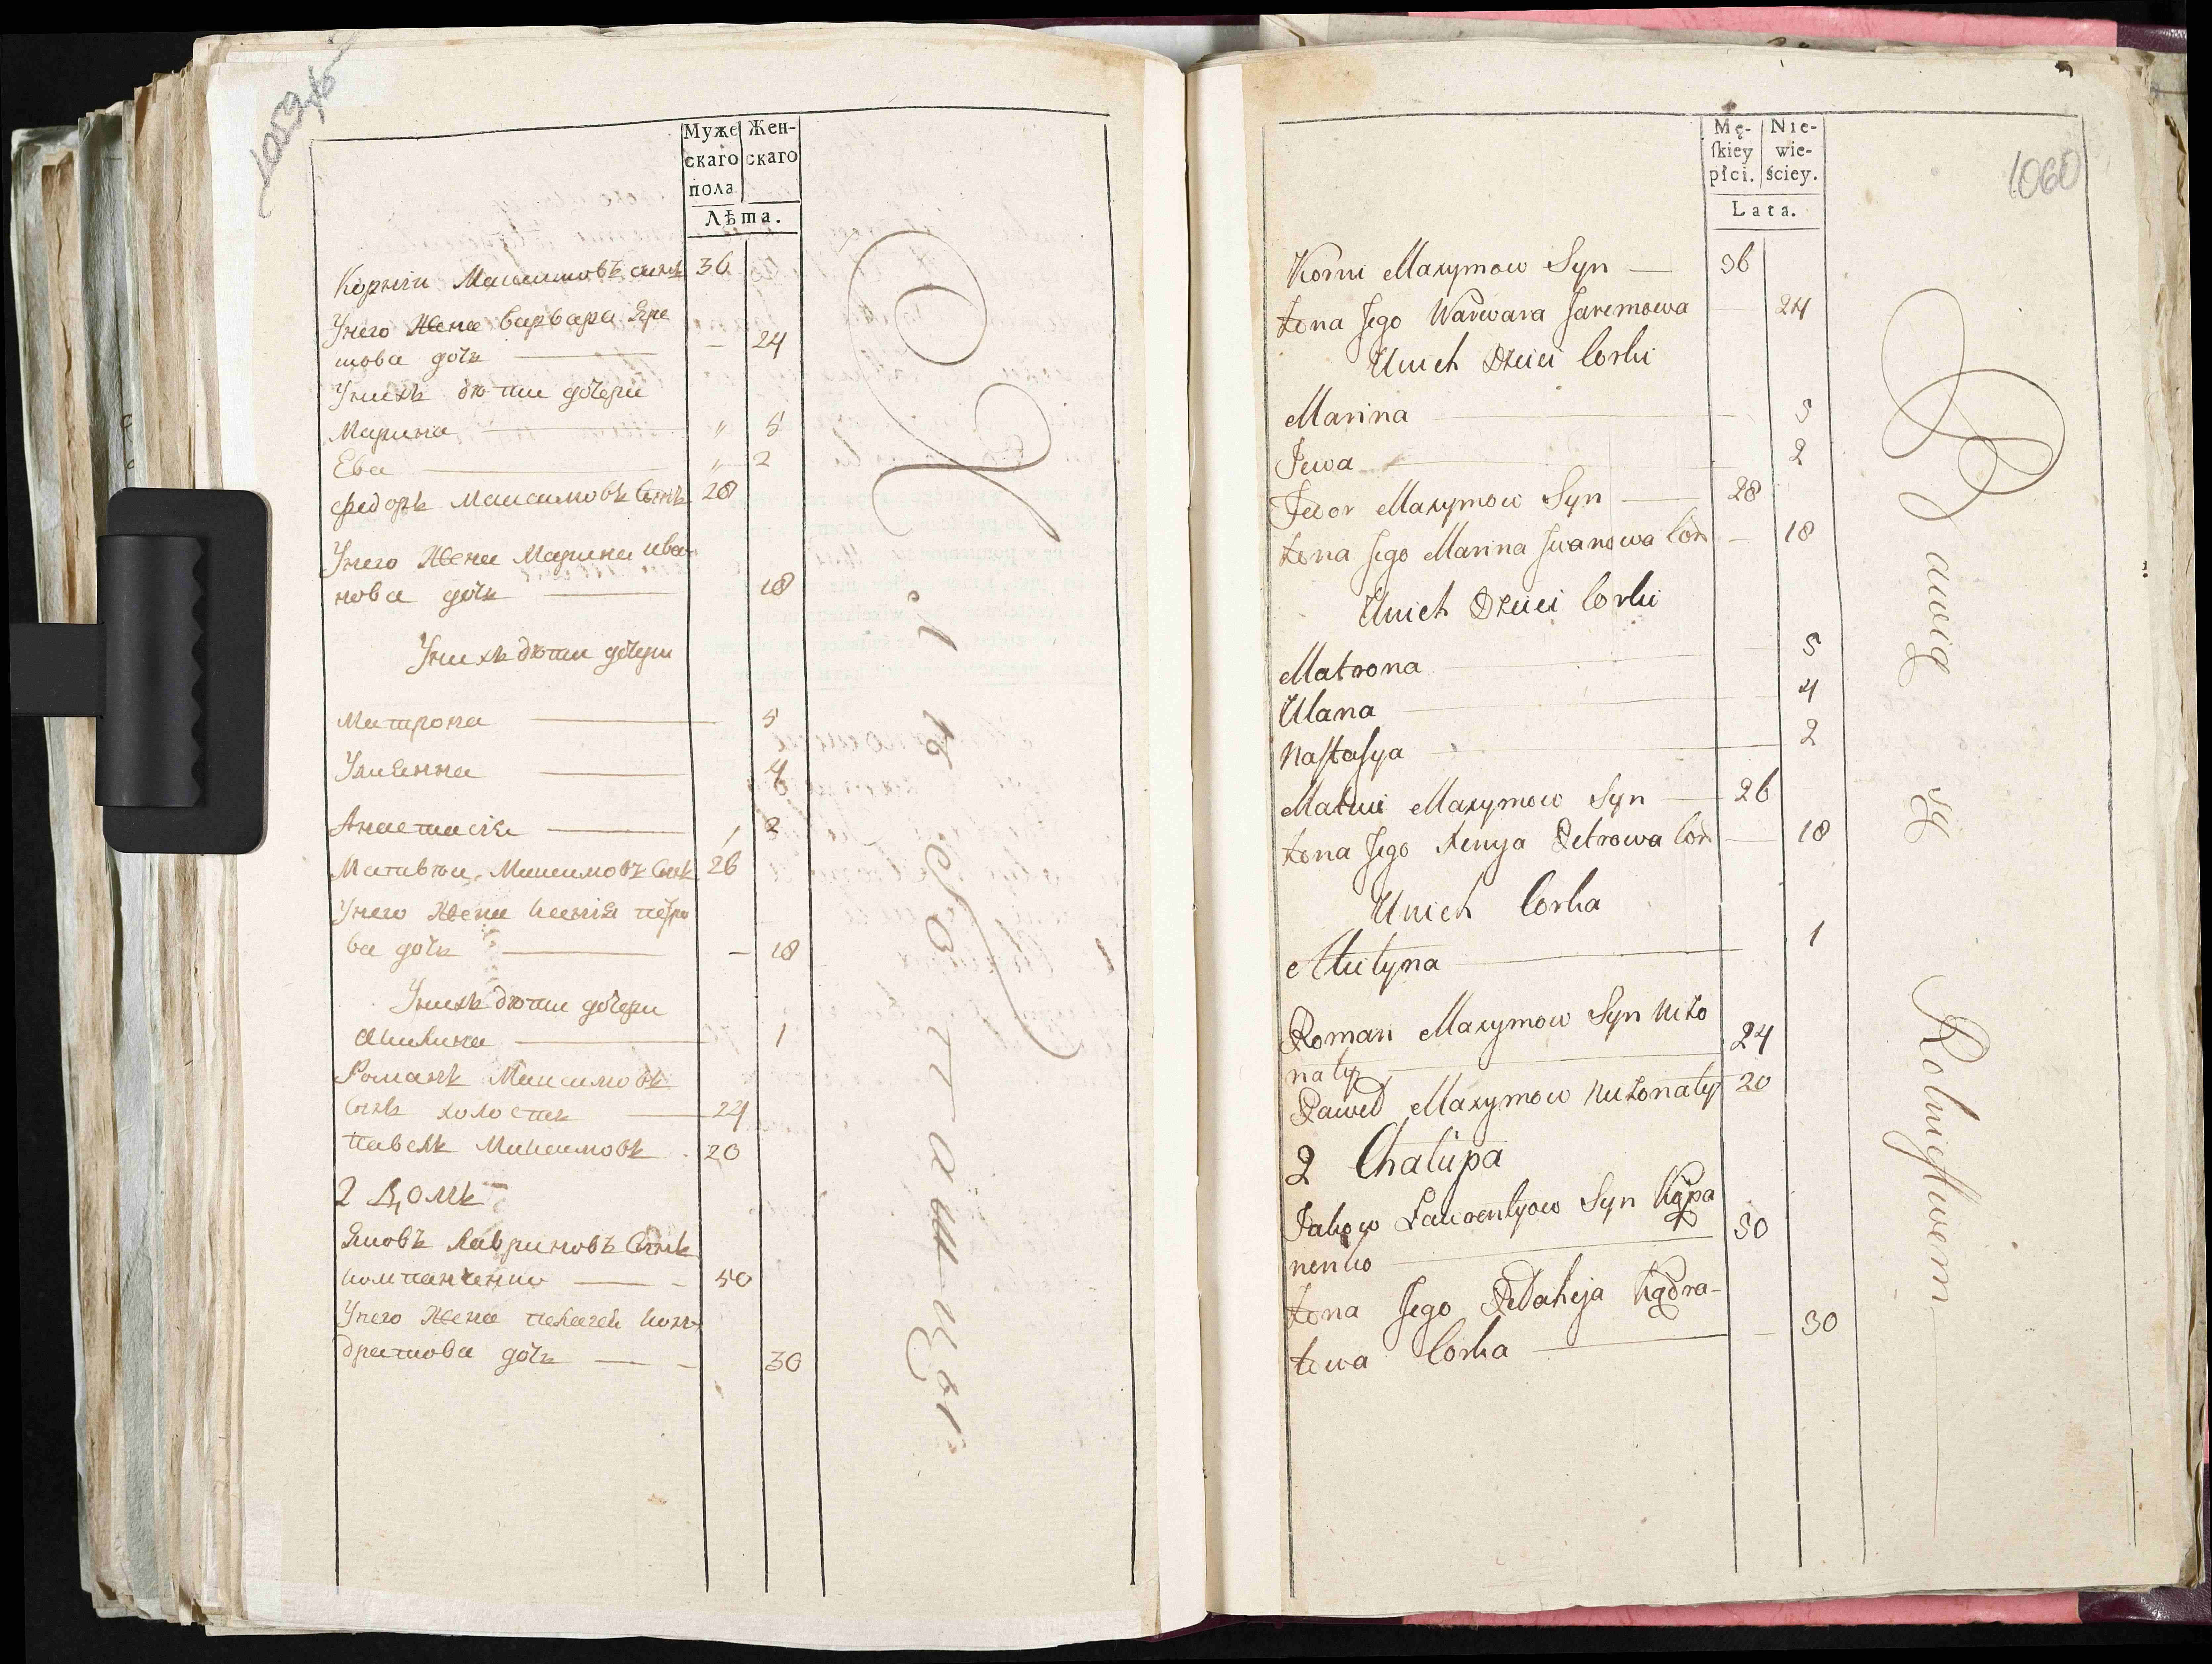 Муже Жен-
скаго скаго
пола
Лѣта.
Корнѣи Максимовъ сынъ 36
Унего Жена Варвара Яре
мова дочь — 24
Унихъ дѣти дочери
Марина — " 5
Ева — " 2
Федоръ Максимовъ Сынъ 28
Унего Жена Марина Ива
нова дочь — 18
Унихъ дѣти дочери
Матрона — 5
Улиянна — 4
Анастасія — 2
Матвѣи Максимовъ Сынъ 26
Унего Жена Ксенія петро
ва дочь — 18
Унихъ дѣти дочери
Акилина — 1
Романъ Максимовъ
Сынъ холостъ — 24
Павелъ Максимовъ 20
2 Домъ
Яковъ Лавриновъ Сынъ
компанченко — 50
Унего Жена пелагея кон
дратова дочь — 30
Mę- Nie-
ſkiey wie-
płci. ściey.
Lata.
1060
Korni Maxymow Syn — 36
Żona Jego Warwara Jaremowa 24
Unich Dzieci Corki
Marina — 5
Jewa — 2
Fedor Maxymow Syn — 28
Żona Jego Marina Iwanowa Cor — 18
Unich Dzieci Corki
Matrona — 5
Ulana — 4
Naſtaſya — 2
Matwi Maxymow Syn — 26
Żona Jego Xenya Petrowa Cor — 18
Unich Corka
Akulyna — 1
Roman Maxymow Syn Niżo
naty — 24
Paweł Maxymow Niżonaty 20
2 Chałupa
Jakow Lawrentyow Syn Kąpa
nenko — 50
Żona Jego Pełaheja Kądra-
towa Corka — 30
Bawią się Rolnictwem